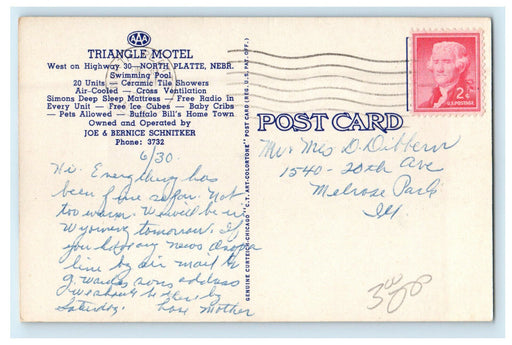 AAA
TRIANGLE MOTEL
West on Highway 30—NORTH PLATTE, NEBR.
Swimming Pool
20 Units — Ceramic Tile Showers
Air-Cooled — Cross Ventilation
Simons Deep Sleep Mattress — Free Radio in
Every Unit — Free Ice Cubes — Baby Cribs
— Pets Allowed — Buffalo Bill's Home Town
Owned and Operated by
JOE & BERNICE SCHNITKER
Phone: 3732
6/30.
Hi. Everything has
been fine so far. Not
too warm. We will be in
Wyoming tomorrow. If
you have any news drop a
line by air mail to
sons address
we should be there by
Saturday. Love Mother
GENUINE CURTEICH-CHICAGO "C.T. ART-COLORTONE" POST CARD (REG. U.S. PAT. OFF.)
POST CARD
2¢
U.S. POSTAGE
Mr & Mrs D. Dibbern
1540-20th Ave
Melrose Park
Ill
300